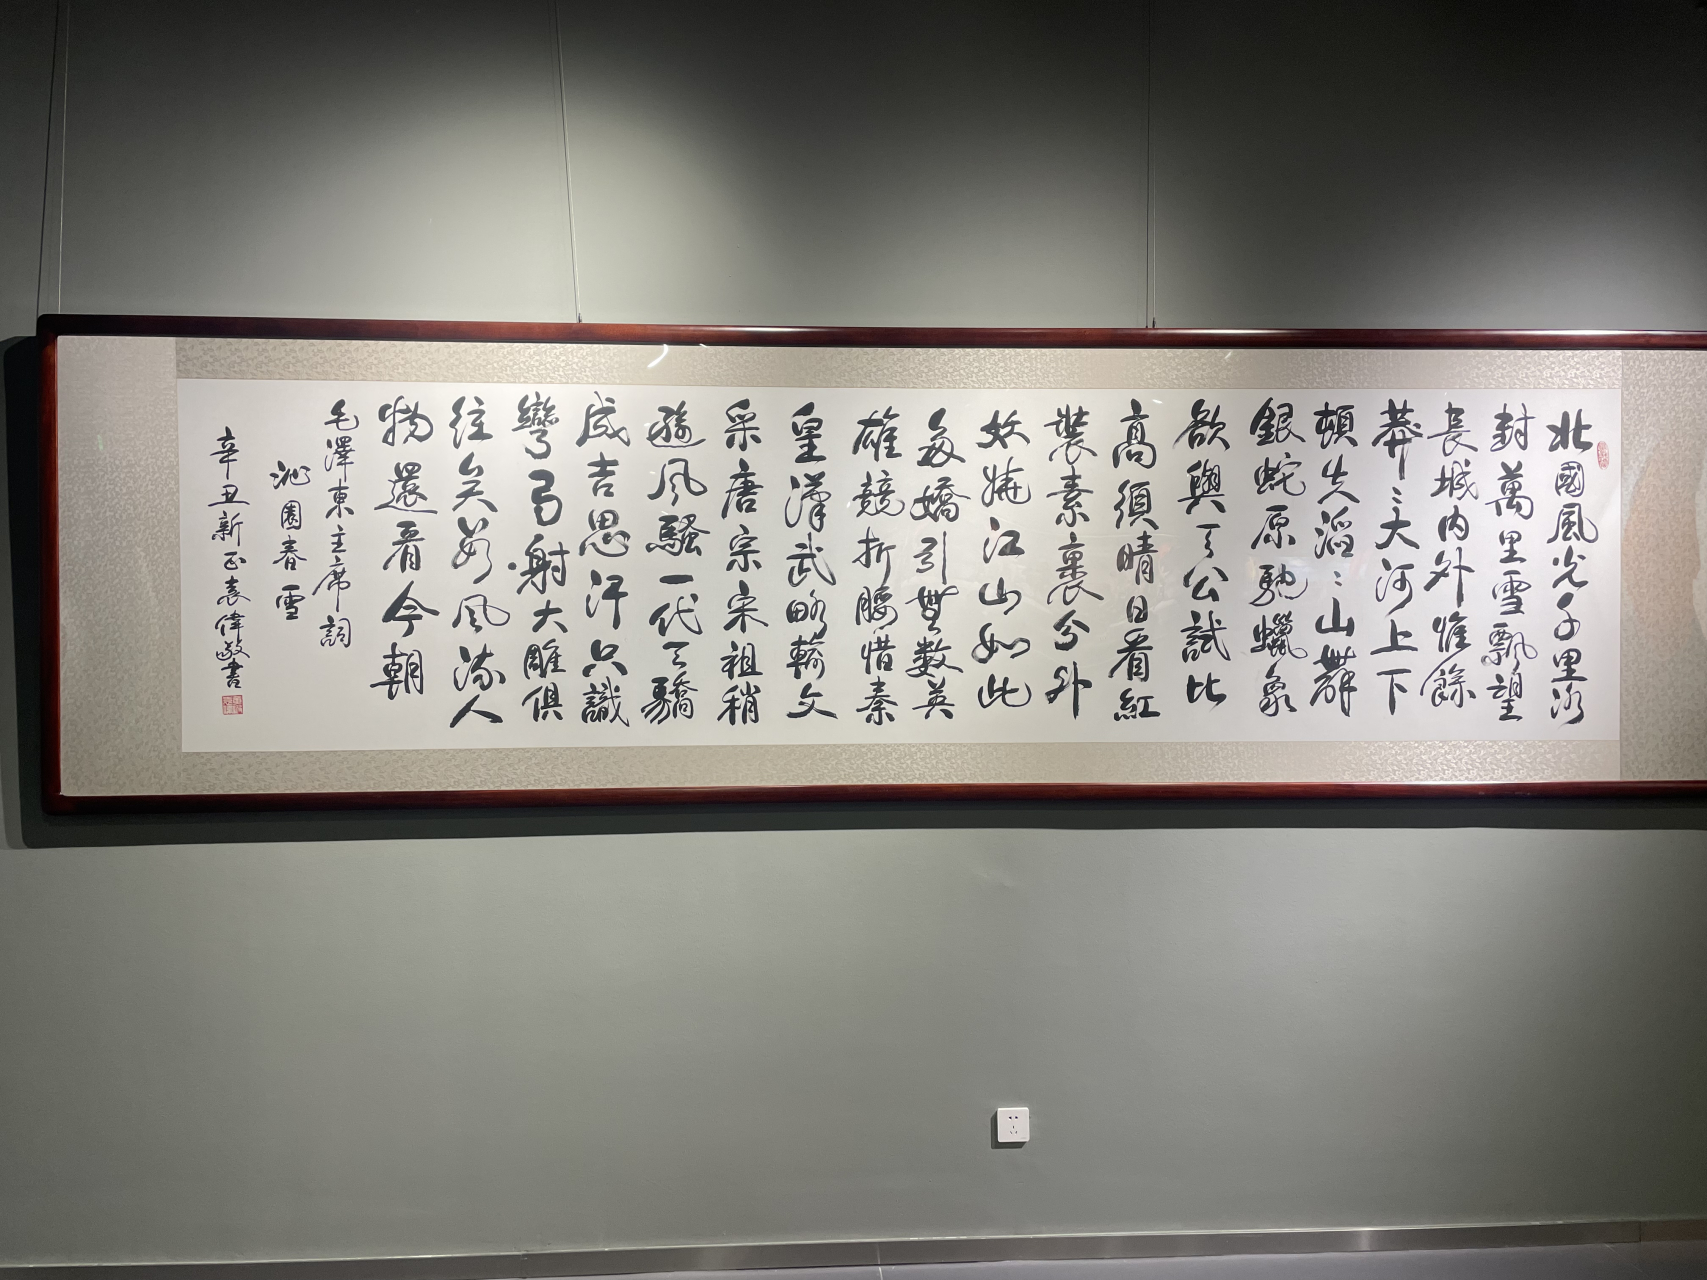 北國風光千里冰
封萬里雪飄望
長城内外惟餘
莽〻大河上下
頓失滔〻山舞
銀蛇原馳蠟象
欲與天公試比
高須晴日看紅
裝素裹分外
妖嬈江山如此
多嬌引無數英
雄競折腰惜秦
皇漢武略輸文
采唐宗宋祖稍
遜風騷一代天驕
成吉思汗只識
彎弓射大雕俱
往矣數風流人
物還看今朝
毛澤東主席詞
沁園春雪
辛丑新正袁偉敬書